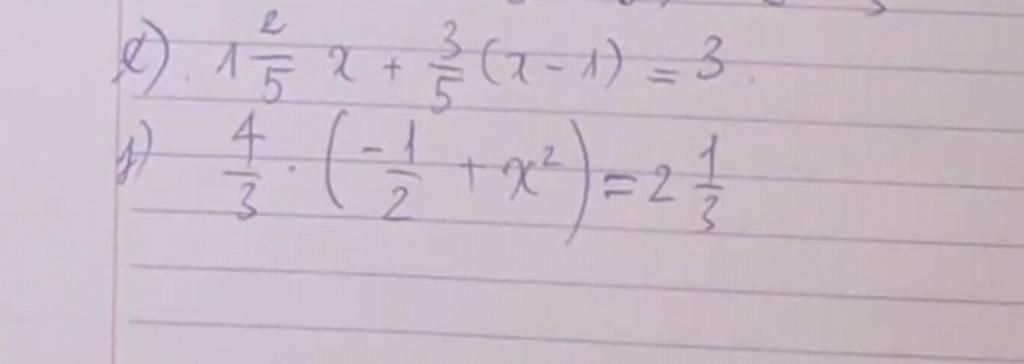 e) 1 2/5 x + 3/5 (x - 1) = 3
f) 4/3 · (-1/2 + x²) = 2 1/3